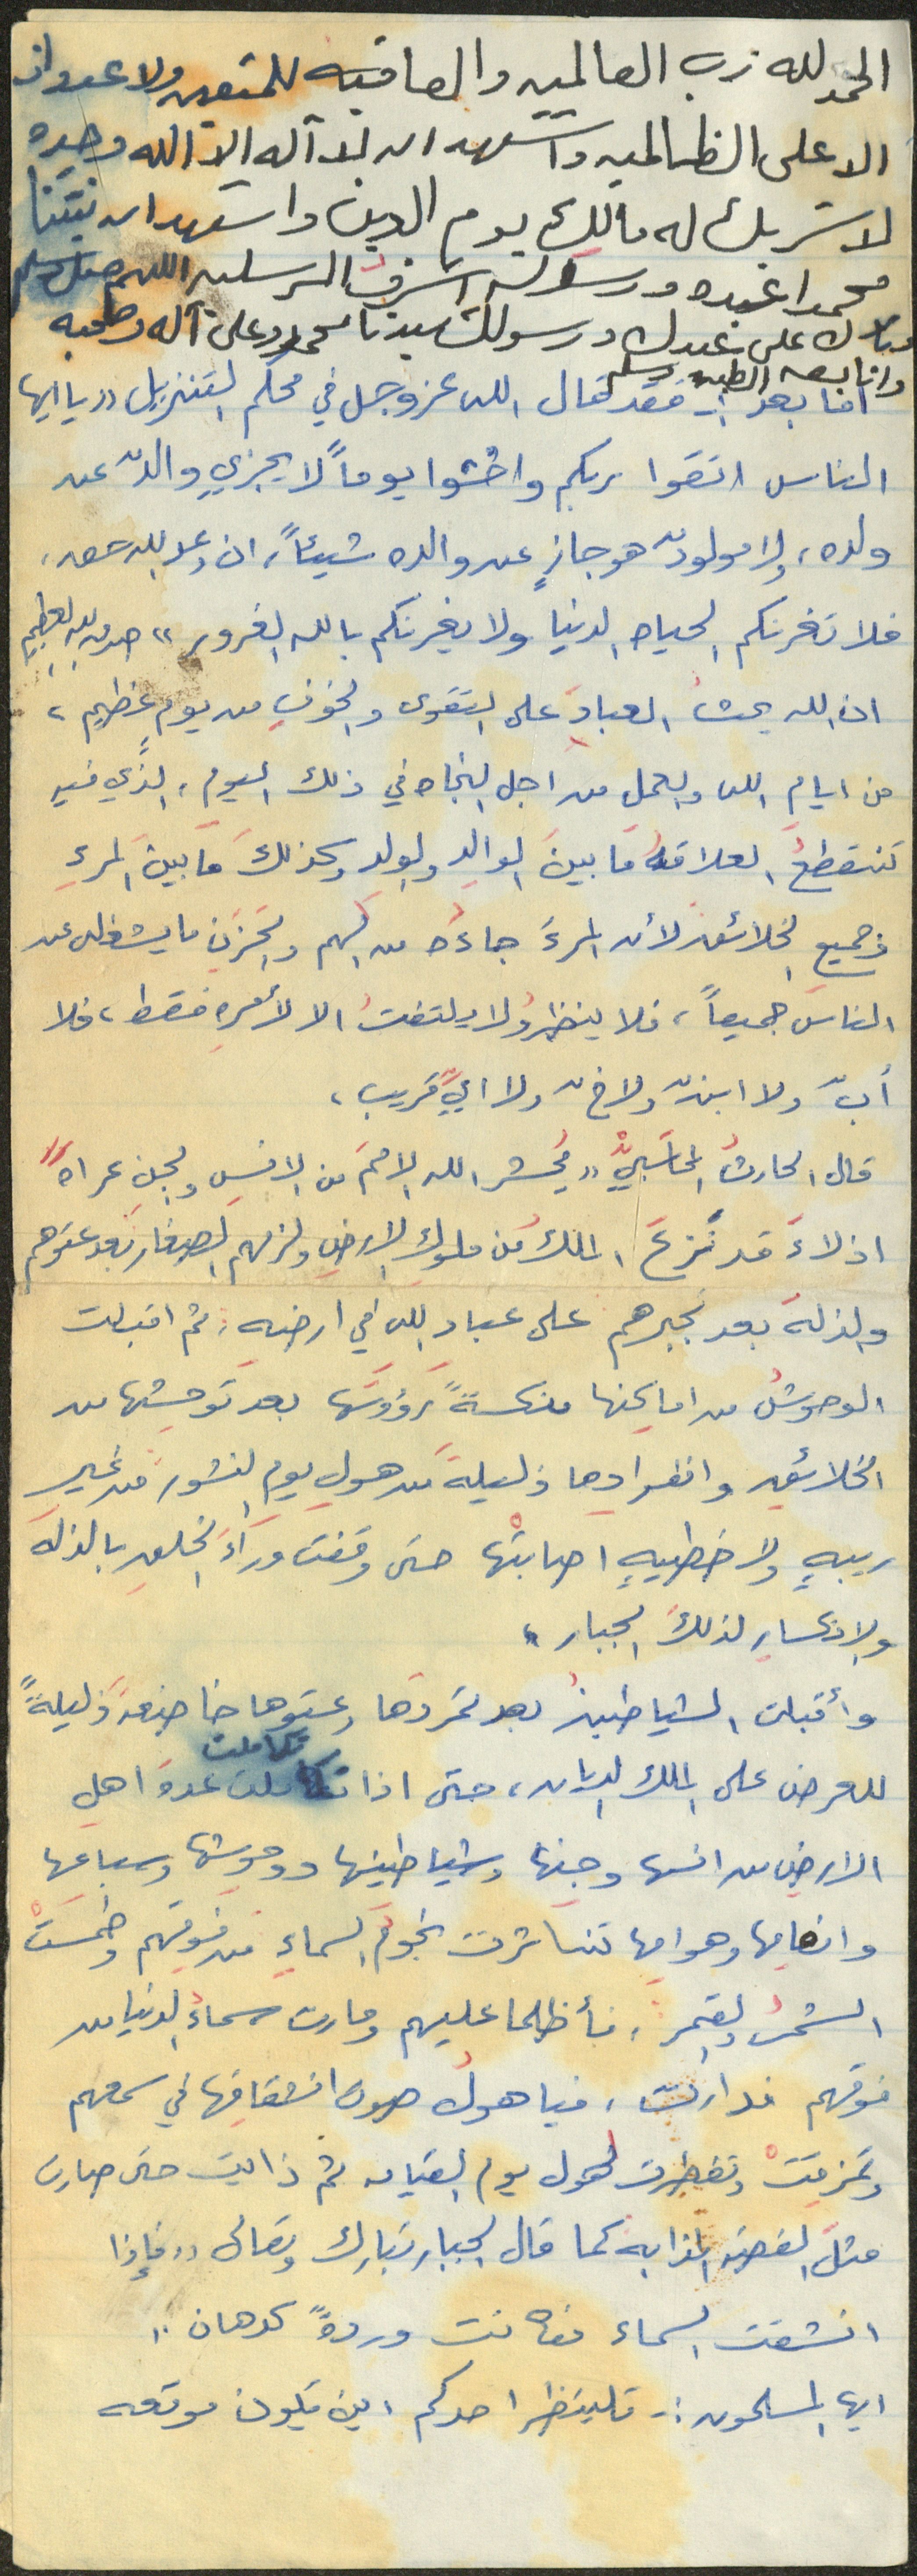 الحمد لله رب العالمين والعاقبه للمتقين ولا عدوان
الا على الظالمين واشهد ان لا آله الا الله وحده
لا شريك له مالك يوم الدين واشهد ان نبينا
محمدا عبده ورسوله اشرف المرسلين اللهم صل وسلم
وبارك على عبدك ورسولك سيدنا محمد وعلى آله وصحبه
اما بعد :- فقد قال الله عز وجل في محكم التنزيل «يا ايها
الناس اتقوا ربكم واخشوا يوماً لا يجزي والدٌ عن
ولده، ولا مولودٌ هو جازٍ عن والده شيئاً، ان وعد الله حق،
فلا تغرنكم الحياه الدنيا ولا يغرنكم بالله الغرور» صدق الله العظيم
ان الله يحث العبادَ على التقوى والخوفِ من يوم عظيم،
من ايام الله والعمل من اجل النجاه في ذلك اليوم، الذي فيه
تنقطعُ العلاقهُ مَا بينَ الوالد والولد وكذلكَ مَا بينَ المرءِ
وجميع الخلائق لأن المرءَ جاءهُ من الهم والحَزَن ما يشغله عن
الناس جميعاً، فلا ينظرُ ولا يلتفتُ الا لأمره فقط، فلا
أبٌ ولا ابنٌ ولا اخٌ ولا ايُّ قريب،
قال الحارثُ المحاسبيُّ «يُحشر الله الاممَ من الانسِ والجن عراهً
اذلاءَ قد نُزعَ الملكُ من ملوك الارضِ ولزمهم الصغار بعد عتوهم
والذلهَ بعد تجبرهم على عباد الله في ارضه، ثم اقبلت
الوحوشُ من اماكنها منكسةً رؤوسَها بعد توحشها من
الخلائق وانفرادها ذليلةَ من هولِ يوم النشور من غير
ريبهٍ ولا خطيئهٍ اصابتْها حتى وقفت وراءَ الخلق بالذله
والانكسار لذلكَ الجبار»
وأقبلت الشياطينُ بعد تمردها وعتوها خاضعةً ذليلةً
للعرض على الملك الديان، حتى اذا تكاملت عدةُ اهل
الارض من انسها وجنها وشياطينها ووحوشها وسباعها
وانعامها وهوامها تناثرت نجومُ السماءِ من فوقهم وطمستْ
الشمسُ والقمر، فأظلما عليهم ومارت سماءُ الدنيا من
فوقهم فدارت، فيا هولُ صوت انشقاقها في سمعهم
وتمزقتْ وتفطرت لهول يوم القيامه ثم ذابت حتى صارت
مثلَ الفضه المذابه كما قال الجبار تبارك وتعالى «فإذا
انشقت السماء فكانت وردةً كدهان»
ايها المسلمون :- فلينظر احدكم اين يكون موقعه